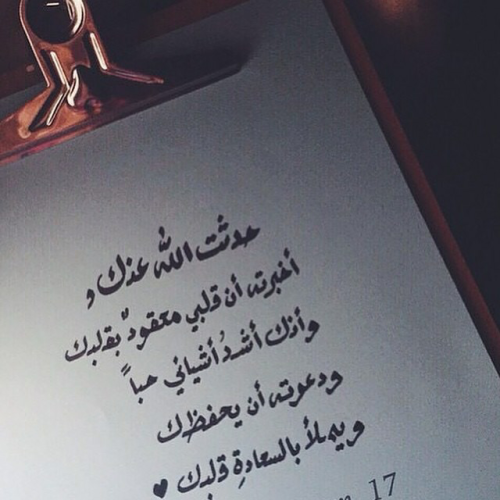 حدثت الله عنك و
أخبرته أن قلبي معقودٌ بقلبك
وأنك أشدُ أشيائي حباً
ودعوته أن يحفظك
ويملأ بالسعادةِ قلبك ♥
17